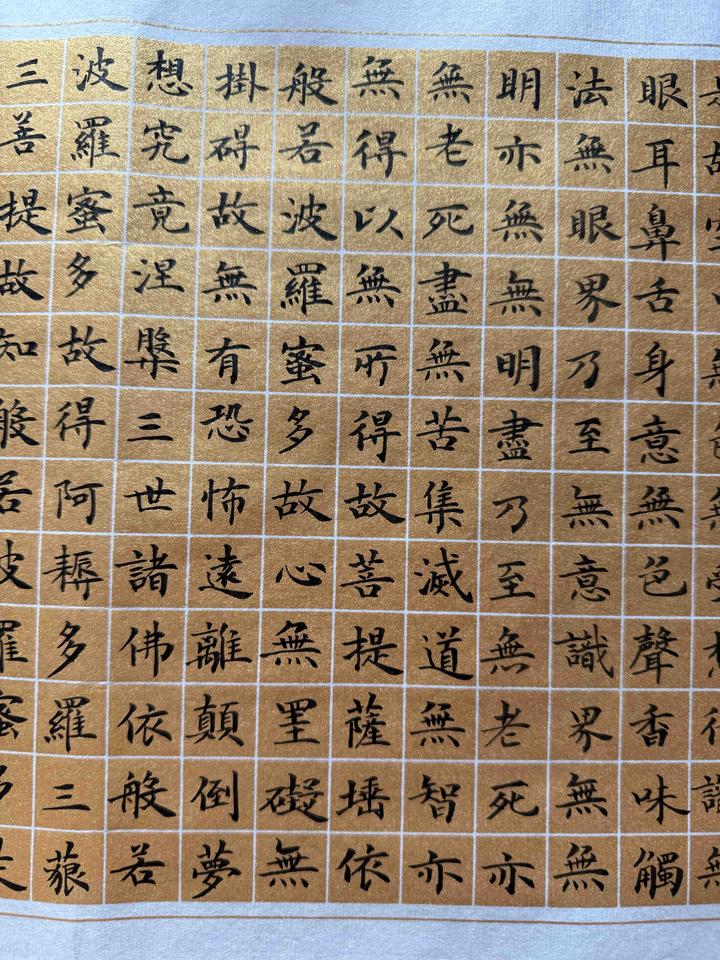 眼耳鼻舌身意無色聲香味觸
法無眼界乃至無意識界無無
明亦無無明盡乃至無老死亦
無老死盡無苦集滅道無智亦
無得以無所得故菩提薩埵依
般若波羅蜜多故心無罣礙無
掛碍故無有恐怖遠離顛倒夢
想究竟涅槃三世諸佛依般若
波羅蜜多故得阿耨多羅三藐
三菩提故知般若波羅蜜多是